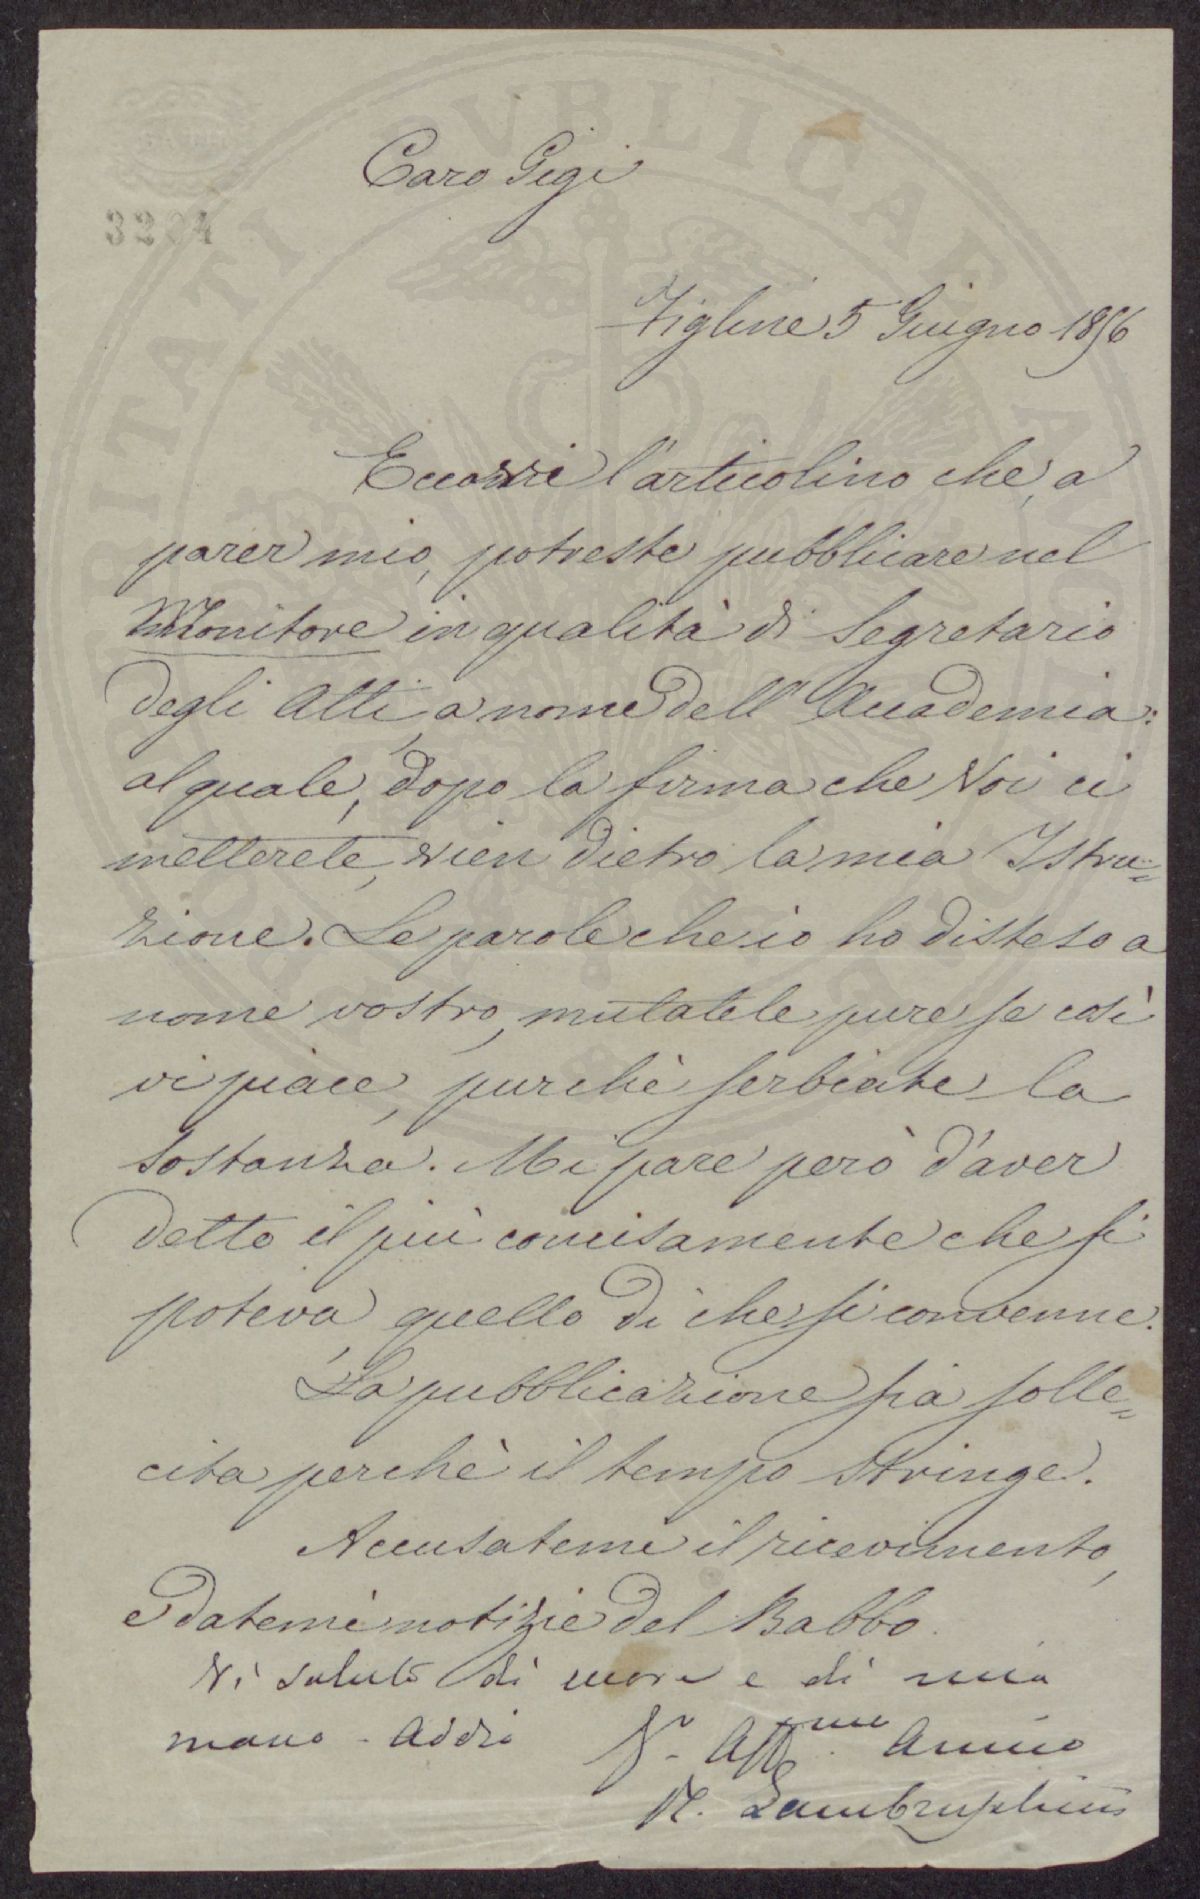 3204
Caro Gigi
Figline 5 Giugno 1856
Eccovi l'articolino che, a
parer mio, potreste pubblicare nel
Monitore in qualità di Segretario
degli Atti, a nome dell'Accademia:
al quale, dopo la firma che Voi ci
metterete, vien dietro la mia Istru=
zione. Le parole che io ho disteso a
nome vostro, mutatele pure se così
vi piace, purchè serbiate la
sostanza. Mi pare però d'aver
detto il più concisamente che si
poteva, quello di che si convenne.
La pubblicazione sia solle=
cita perchè il tempo stringe.
Accusatemi il ricevimento,
e datemi notizie del Babbo.
Vi saluto di cuore e di mia
mano - Addio V. Aff.mo Amico
R. Lambruschini